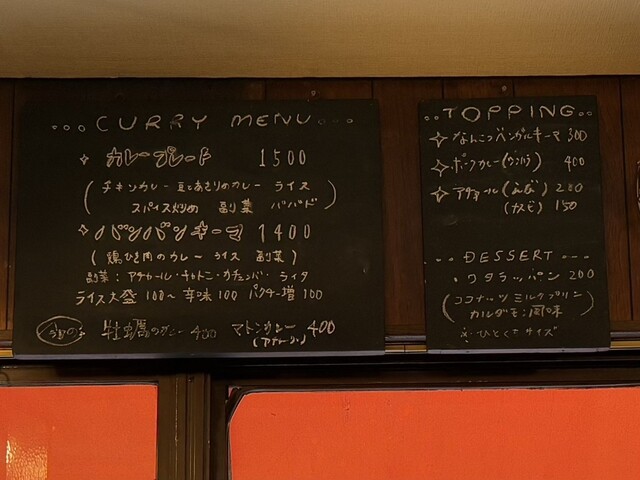 ...CURRY MENU...
カレープレート 1500
(チキンカレー 豆とあさりのカレー ライス
スパイス炒め 副菜 パパド)
バンバンキーマ 1400
(鶏ひき肉のカレー ライス 副菜)
副菜:アチャール・チャトニ・カチュンバ・ライタ
ライス大盛 100~ 辛味 100 パクチー増 100
牡蠣のカレー 400 マトンカレー 400
..TOPPING..
なんこつベンガルキーマ 300
ポークカレー 400
アチャール 200
150
...DESSERT...
ワタラッパン 200
(ココナッツミルクプリン
カルダモン風味)
ひとくちサイズ